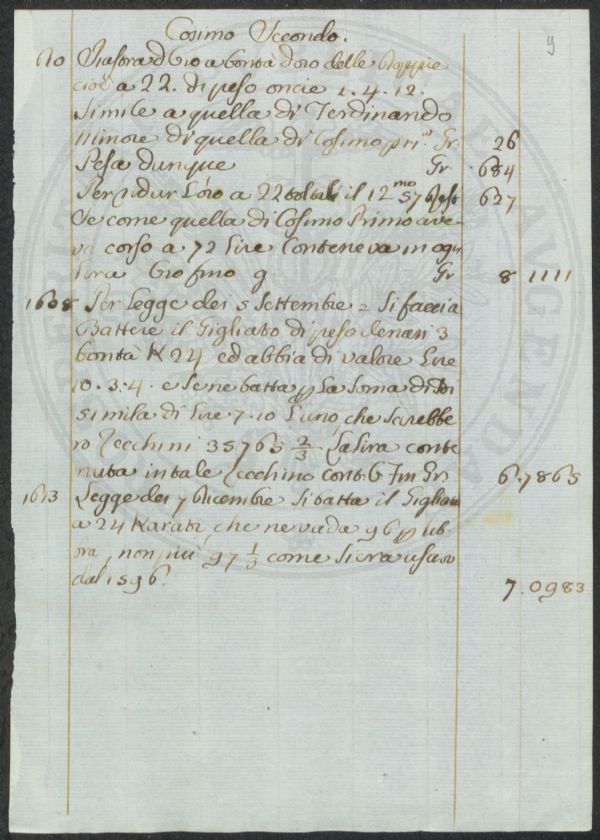 9
Cosimo Secondo.
10 Piastra d'Oro a bontà d'oro delle Doppie
cioè a 22. di peso oncie 1. 4. 12.
Simile a quella di Ferdinando
Minore di quella di Cosimo pri.º Gr. 26
Pesa dunque Gr. 684
Per ridur l'oro a 22 il 12mo 57 627
Se come quella di Cosimo Primo ave-
va corso a 72 Lire Conteneva in ogni
Lira Oro fino g Gr 8 1111
1608 Per Legge dei 5 Settembre = Si faccia
Battere il Gigliato di peso denari 3
bontà K 24 ed abbia di valore Lire
10. 3. 4. e Se ne batta p La Soma di
simila di Lire 7. 10 L'uno, che sarebbe
ro Zecchini 35765 2/3 La Lira conte
nuta in tale Zecchino Gr. 6. 7865
1613 Legge dei 7 Dicembre Si batta il Gigliato
a 24 Karati, che ne vada 96 p Lib
ora, non più 97 1/3 come Si era usato
dal 1596. 7. 0983